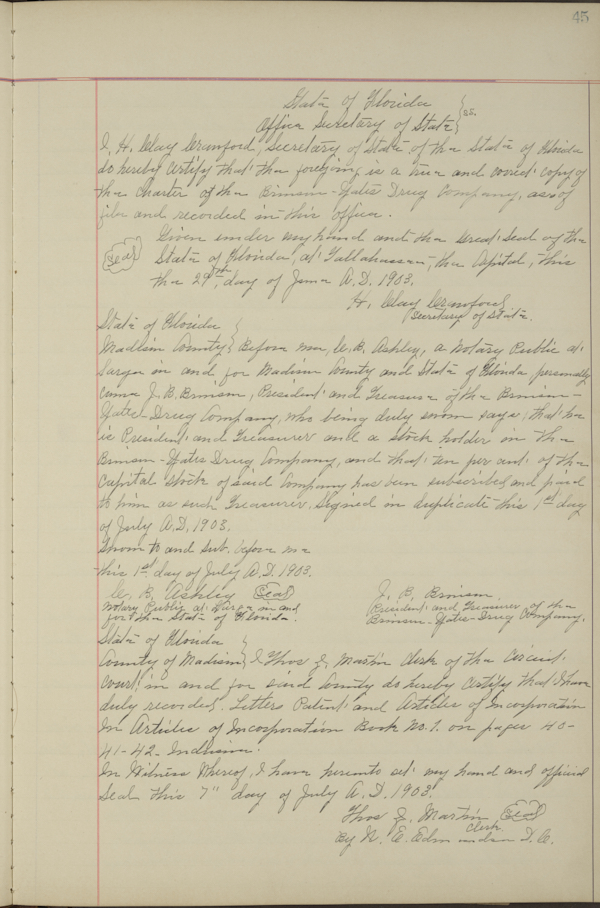 45
State of Florida } ss.
Office Secretary of State }
I, H. Clay Crawford, Secretary of State of the State of Florida
do hereby Certify that the foregoing is a true and correct copy of
the Charter of the Brinson-Yates Drug Company, as of
file and recorded in this office.
Given under my hand and the Great Seal of the
Seal State of Florida, at Tallahassee, the Capital, this
the 29th, day of June A.D. 1903.
H. Clay Crawford
Secretary of State.
State of Florida }
Madison County } Before me, C. B. Ashley, a Notary Public at
Large in and for Madison County and State of Florida personally
came J. B. Brinson, President and Treasurer of the Brinson-
Yates-Drug Company, who being duly sworn says, that he
is President and Treasurer and a stock holder in the
Brinson-Yates Drug Company, and that ten per cent of the
Capital Stock of said Company has been subscribed and paid
to him as such Treasurer. Signed in duplicate this 1st day
of July A.D. 1903.
Sworn to and sub. before me
this 1st day of July A.D. 1903.
C. B. Ashley Seal
Notary Public at Large in and
for the State of Florida.
J. B. Brinson
President and Treasurer of the
Brinson-Yates-Drug Company.
State of Florida }
County of Madison } I Thos J. Martin Clerk of the Circuit
Court in and for said County do hereby Certify that I have
duly recorded Letters Patent and Articles of Incorporation
In Articles of Incorporation Book No. 1. on pages 40-
41-42- Inclusive.
In Witness Whereof, I have hereunto set my hand and official
Seal this 7" day of July A.D. 1903.
Thos J. Martin Seal
Clerk
By N. E. D.C.